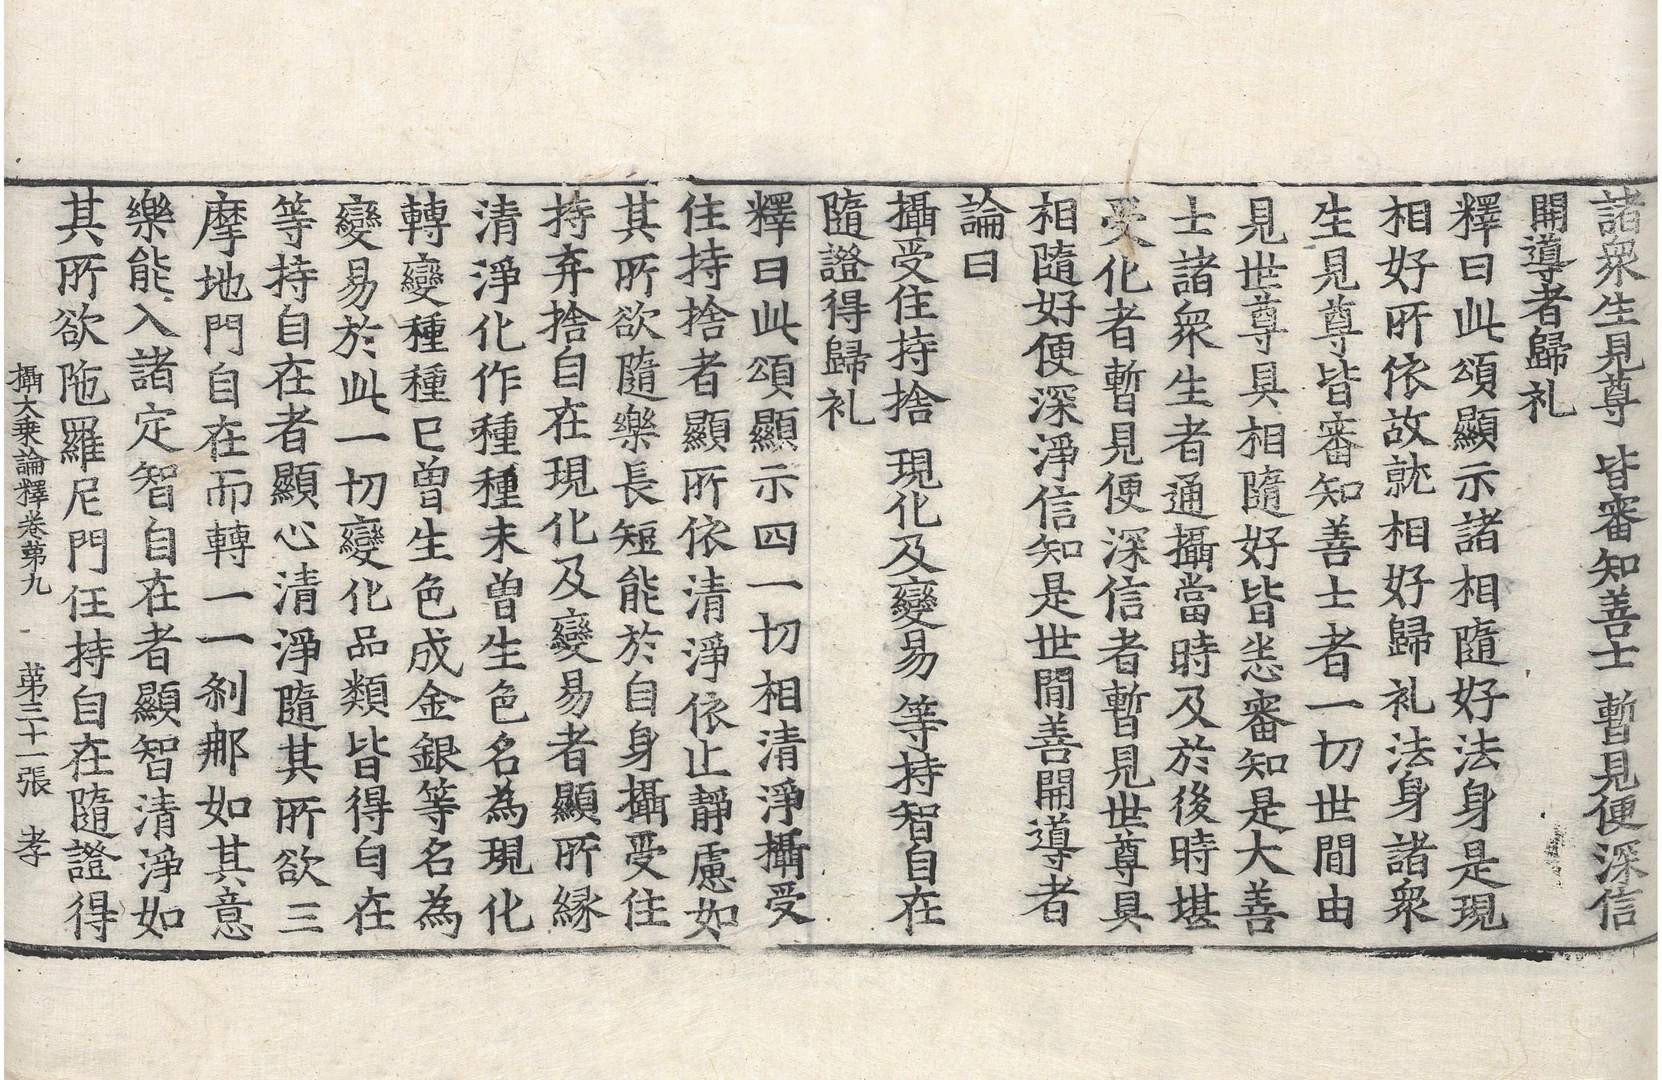 諸衆生見尊 皆審知善士 暫見便深信
開導者歸礼
釋曰此頌顯示諸相隨好法身是現
相好所依故就相好歸礼法身諸衆
生見尊皆審知善士者一切世間由
見世尊具相隨好皆悉審知是大善
士諸衆生者通攝當時及於後時堪
受化者暫見便深信者暫見世尊具
相隨好便深淨信知是世間善開導者
論曰
攝受住持捨 現化及變易 等持智自在
隨證得歸礼
釋曰此頌顯示四一切相清淨攝受
住持捨者顯所依清淨依止靜慮如
其所欲隨樂長短能於自身攝受住
持弃捨自在現化及變易者顯所縁
清淨化作種種未曾生色名為現化
轉變種種已曾生色成金銀等名為
變易於此一切變化品類皆得自在
等持自在者顯心清淨隨其所欲三
摩地門自在而轉一一刹那如其意
樂能入諸定智自在者顯智清淨如
其所欲陁羅尼門任持自在隨證得
攝大乗論釋卷第九 第三十一張 孝